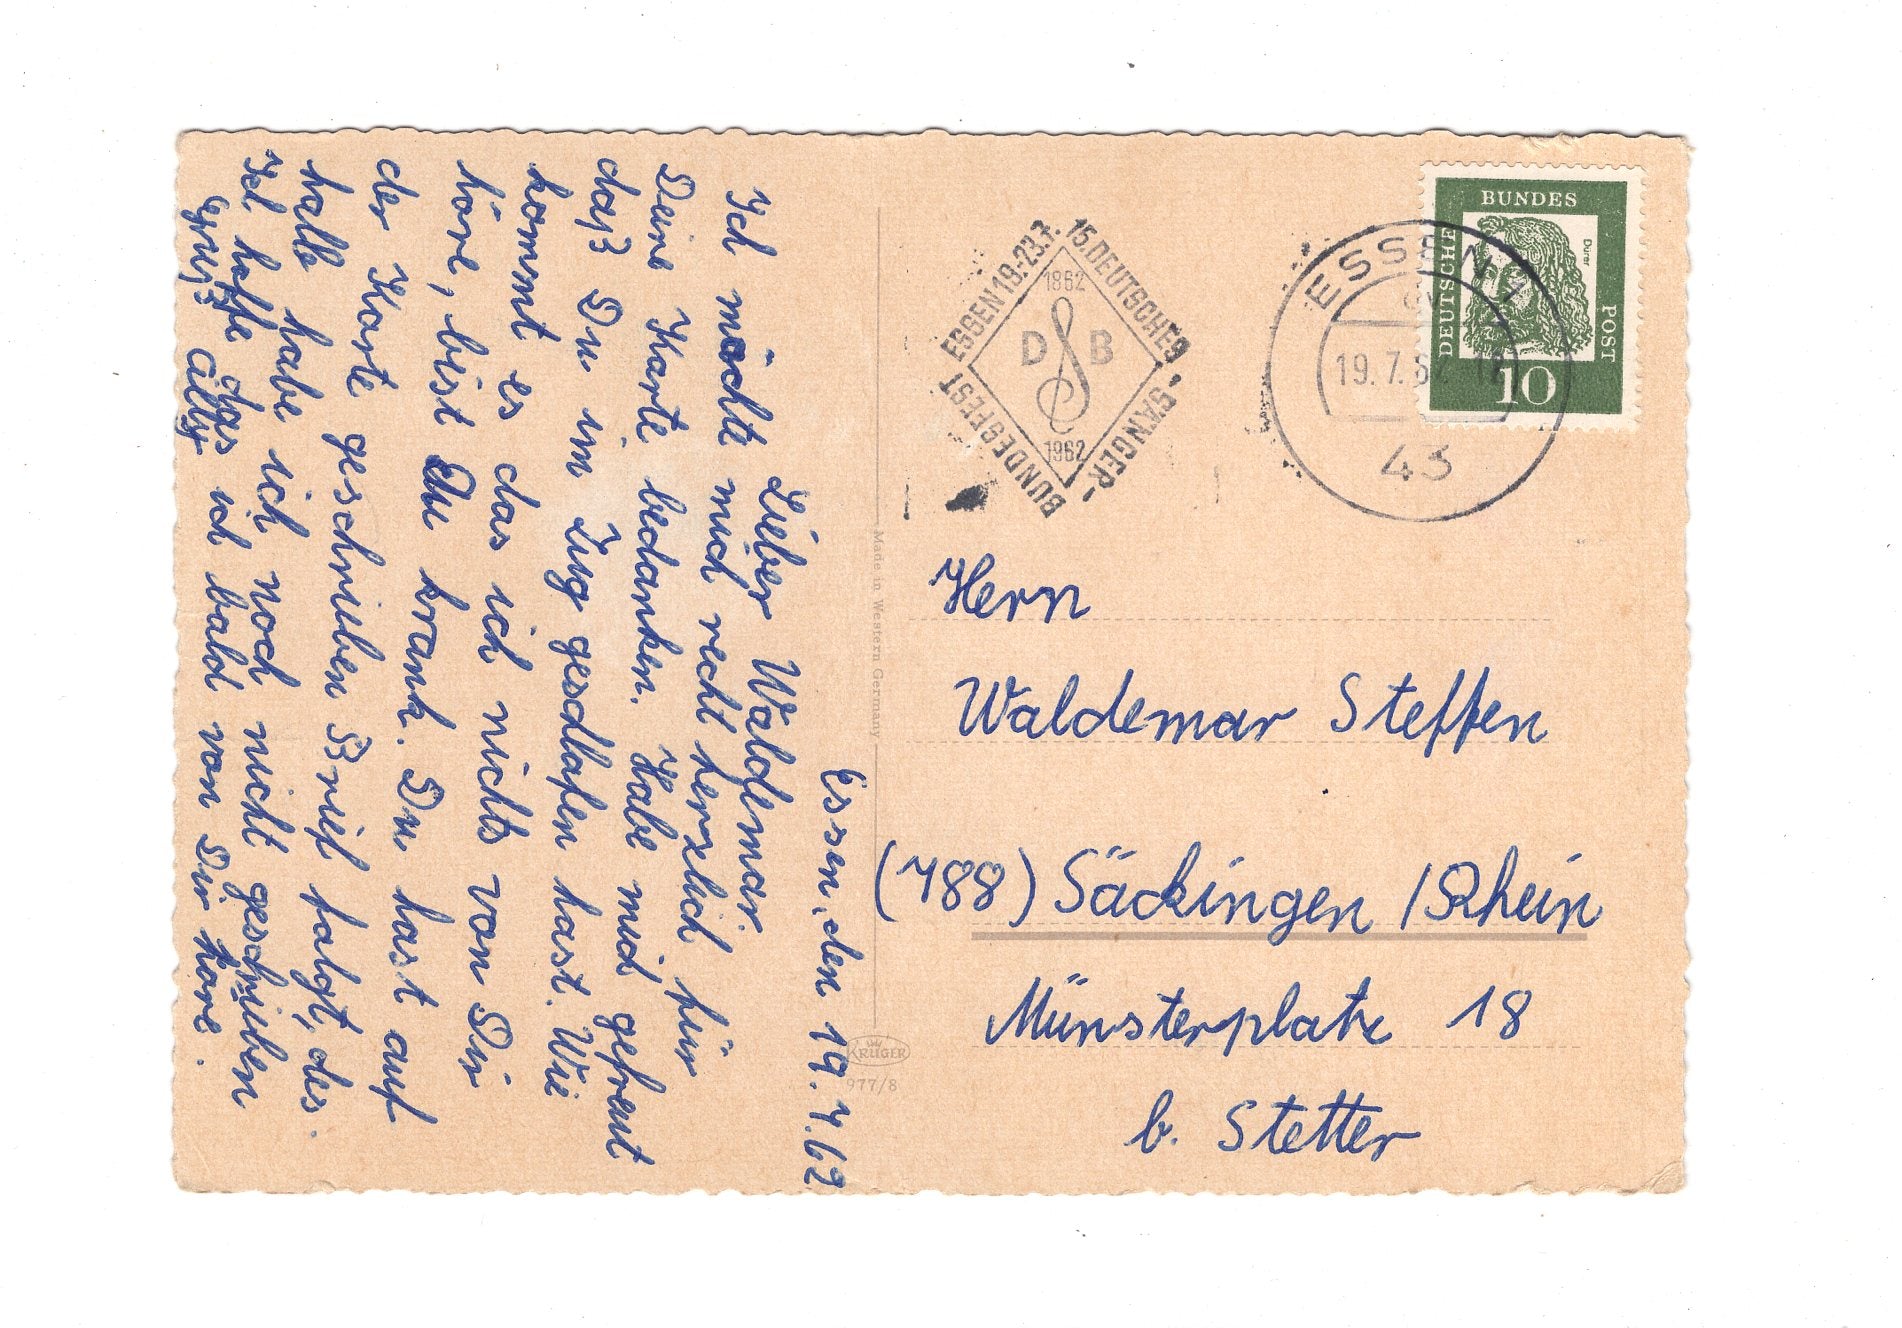 Essen, den 19.7.62
Lieber Waldemar
Ich möchte mich recht herzlich für
Deine Karte bedanken. Habe mich gefreut
daß Du im Zug geschlafen hast. Wie
kommt es das ich nichts von Dir
höre, bist Du krank. Du hast auf
der Karte geschrieben Brief folgt, des
halb habe ich noch nicht geschrieben.
Ich hoffe das ich bald von Dir höre.
Gruß Ally
Made in Western Germany
KRÜGER
977/8
ESSEN 19.-23.7. 15.DEUTSCHES
SÄNGER-
BUNDESFEST
1862
D B
1962
ESSEN 1
19.7.62
43
BUNDES
DEUTSCHE
POST
Dürer
10
Herrn
Waldemar Steffen
(788) Säckingen /Rhein
Münsterplatz 18
b. Stetter